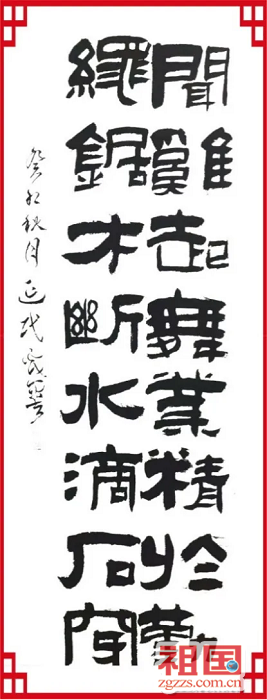 聞雞起舞業精於勤
繩鋸木斷水滴石穿
癸卯秋月
祖国
zgzzs.com.cn